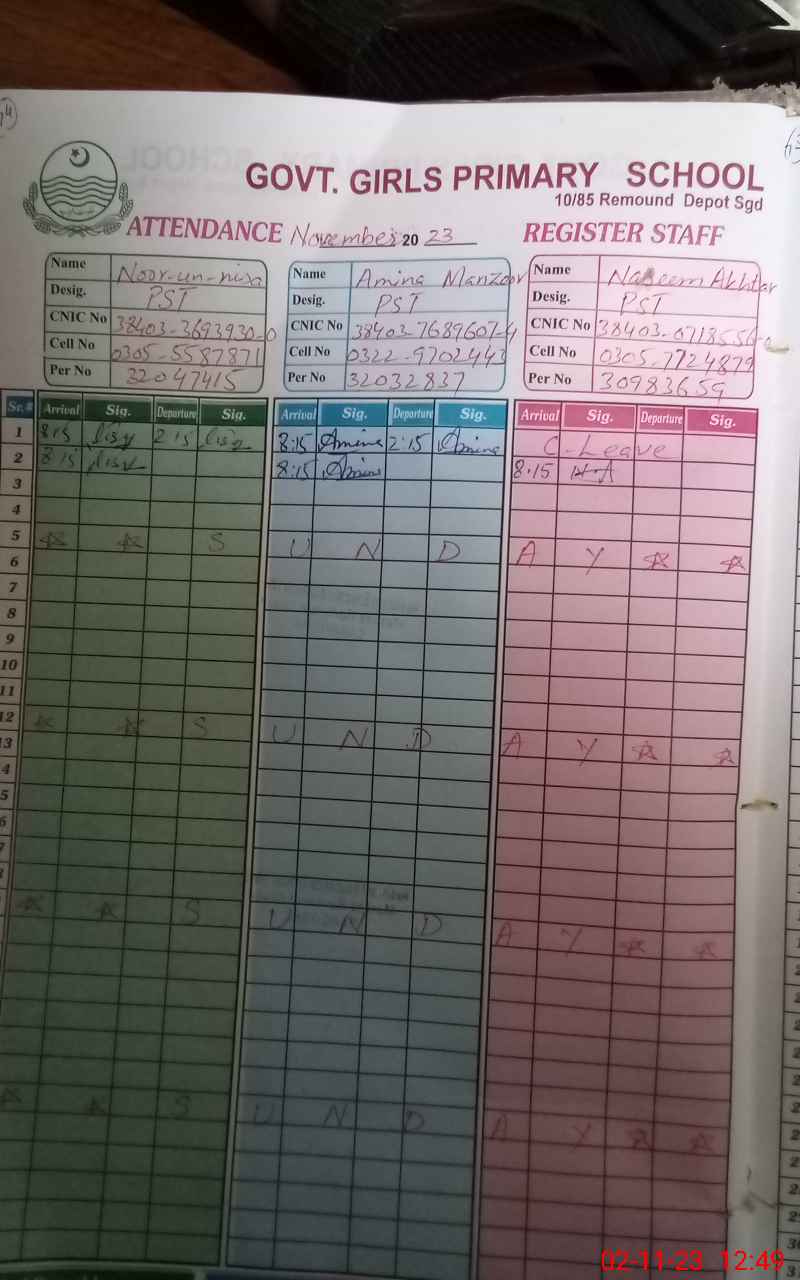 GOVT. GIRLS PRIMARY SCHOOL
10/85 Remound Depot Sgd
ATTENDANCE November 2023 REGISTER STAFF
Name Noor-un-nisa
Desig. PST
CNIC No 38403-3693930-0
Cell No 0305-5587871
Per No 32047415
Name Amina Manzoor
Desig. PST
CNIC No 38403-7689607-4
Cell No 0322-9702443
Per No 32032837
Name Naseem Akhtar
Desig. PST
CNIC No 38403-0718556-0
Cell No 0305-7724879
Per No 30983659
Sr.# Arrival Sig. Departure Sig. Arrival Sig. Departure Sig. Arrival Sig. Departure Sig.
1 8:15 2:15 8:15 Amina 2:15 Amina C-Leave
2 8:15 8:15 Amina 8:15
3
4
5 S U N D A Y
6
7
8
9
10
11
12 S U N D A Y
13
S U N D A Y
S U N D A Y
02-11-23 12:49